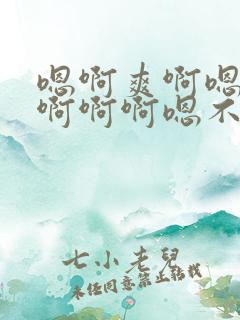 嗯啊爽啊嗯
啊啊啊嗯不
七小老儿
未经同意禁止转载